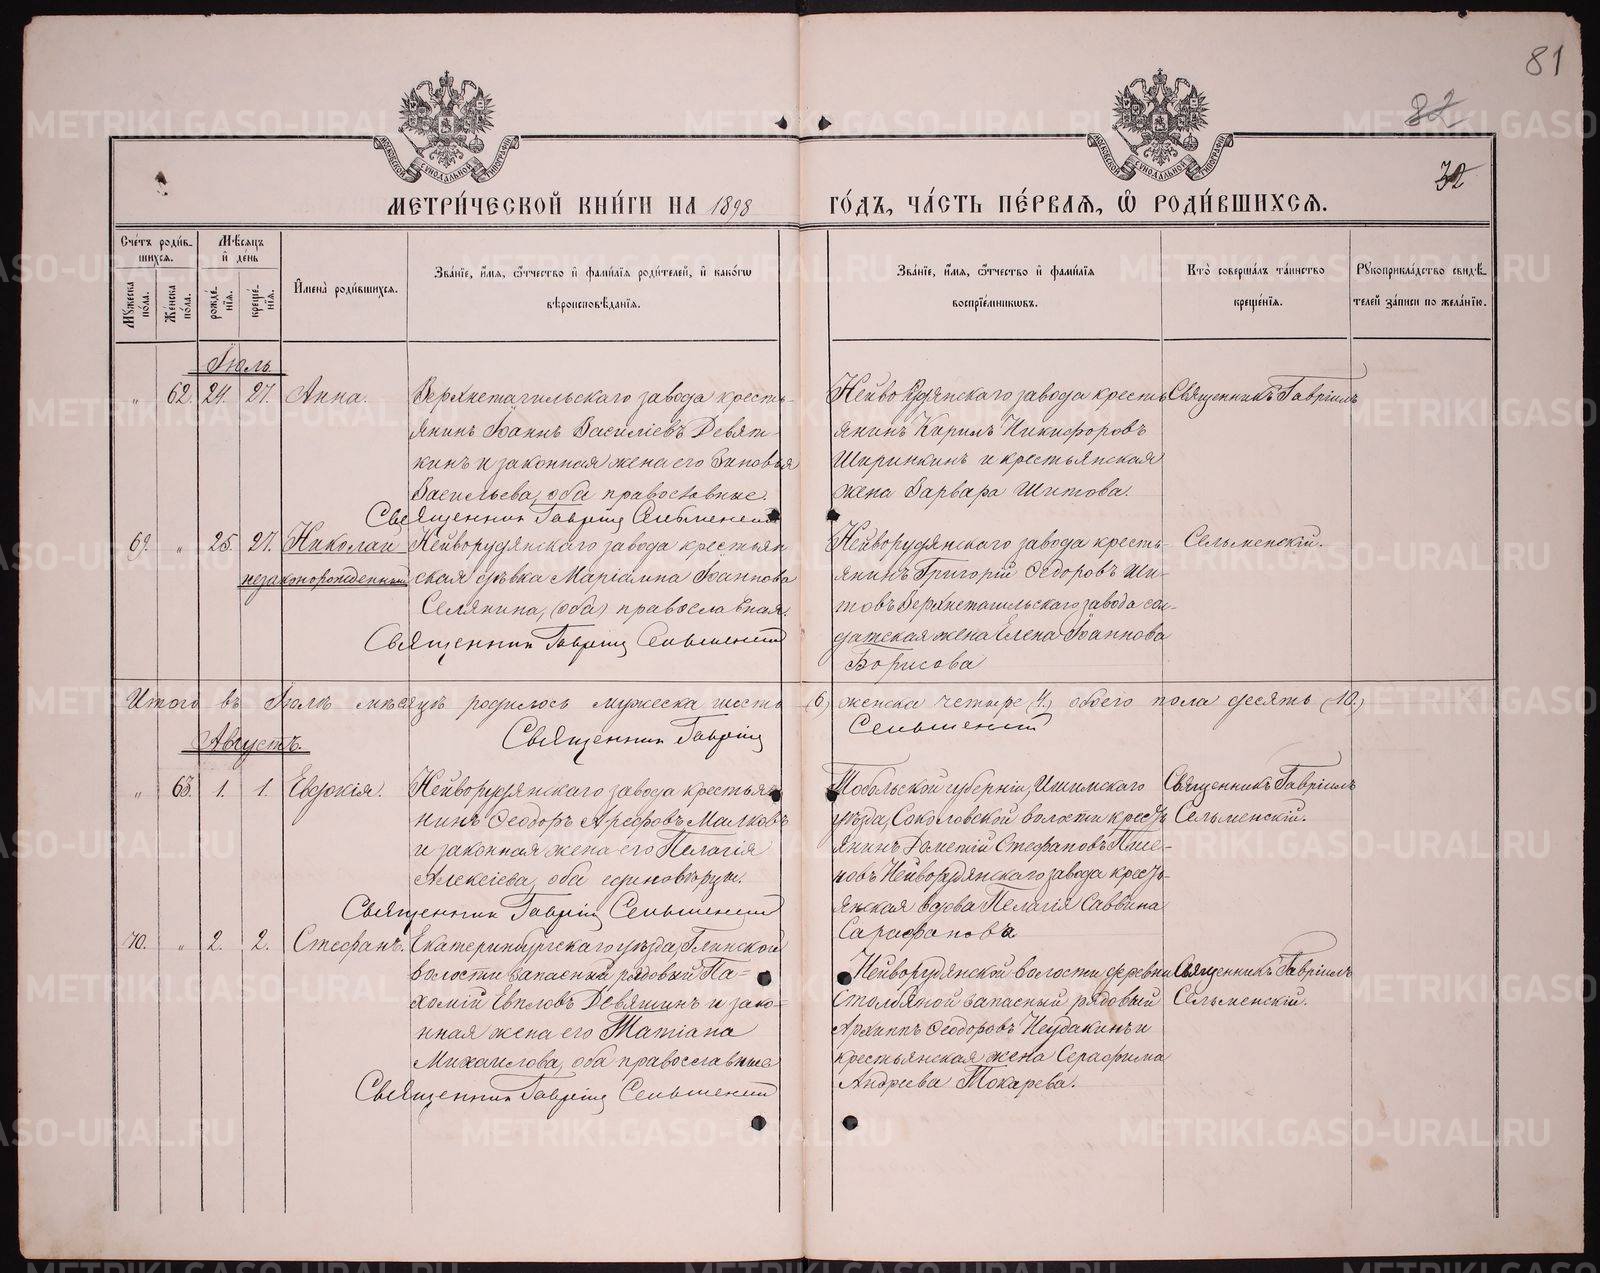 81
82
32
МОСКОВСКОЙ СѴНОДАЛЬНОЙ ТИПОГРАФІИ
МОСКОВСКОЙ СѴНОДАЛЬНОЙ ТИПОГРАФІИ
МЕТРИ́ЧЕСКОЙ КНИ́ГИ НА 1898 ГО́ДЪ, ЧА́СТЬ ПЕ́РВАЯ, Ѡ РОДИ́ВШИХСЯ.
Сче́тъ роди́в-
шихся.
Мꙋ́жеска по́ла.
Же́нска по́ла.
Мѣ́сяцъ и҆ де́нь
рожде́-
нїя.
креще́-
нїя.
И҆мена̀ роди́вшихся.
Зва́нїе, и҆́мя, ѻ҆́тчество и҆ фами́лїя роди́телей, и҆ како́гѡ
вѣроисповѣ́данїя.
Зва́нїе, и҆́мя, ѻ҆́тчество и҆ фами́лїя
воспрїе́мниковъ.
Кто̀ соверша́лъ та́инство
креще́нїя.
Рꙋкоприкла́дство свидѣ́-
телей за́писи по жела́нїю.
Іюль.
„ 62. 24. 27. Анна.
Верхнетагильскаго завода кресть-
янинъ Іоаннъ Василіевъ Девят-
кинъ и законная жена его Зиновья
Васильева, оба православные.
Священникъ Гавріилъ Сельменскій
Нейворудянскаго завода кресть
янинъ Кирилъ Никифоровъ
Ширинкинъ и крестьянская
жена Варвара Шитова.
Священникъ Гавріилъ
69. „ 25. 27. Николай
незаконорожденный
Нейворудянскаго завода крестьян
ская дѣвка Маріамна Іоаннова
Селянина, (оба) православная.
Священникъ Гавріилъ Сельменскій
Нейворудянскаго завода кресть-
янинъ Григорій Ѳедоровъ Ши-
товъ Верхнетагильскаго завода сол-
датская жена Елена Іоаннова
Борисова
Сельменскій.
Итого въ Іюлѣ мѣсяцѣ родилось мужеска шесть (6) женска четыре (4.) обоего пола десять (10.)
Священникъ Гавріилъ Сельменскій
Августъ.
„ 63. 1. 1. Евдокія.
Нейворудянскаго завода крестья
нинъ Ѳеодоръ Арефовъ Малковъ
и законная жена его Пелагія
Алексіева, оба единовѣрцы.
Священникъ Гавріилъ Сельменскій
Тобольской губерніи, Ишимскаго
уѣзда, Соколовской волости кресть
янинъ Дометій Стефановъ
Нейворудянскаго завода кресть-
янская вдова Пелагія Саввина
Сарафанова
Священникъ Гавріилъ
Сельменскій.
70. „ 2. 2. Стефанъ.
Екатеринбургскаго уѣзда, Глинской
волости запасный рядовый Па-
хомій Евпловъ Девяшинъ и зако-
нная жена его Татіана
Михаилова, оба православные
Священникъ Гавріилъ Сельменскій
Нейворудянской волости деревни
Столбяной запасный рядовый
Архиппъ Ѳеодоровъ Неудакинъ и
крестьянская жена Серафима
Андреева Токарева.
Священникъ Гавріилъ
Сельменскій.
METRIKI.GASO-URAL.RU